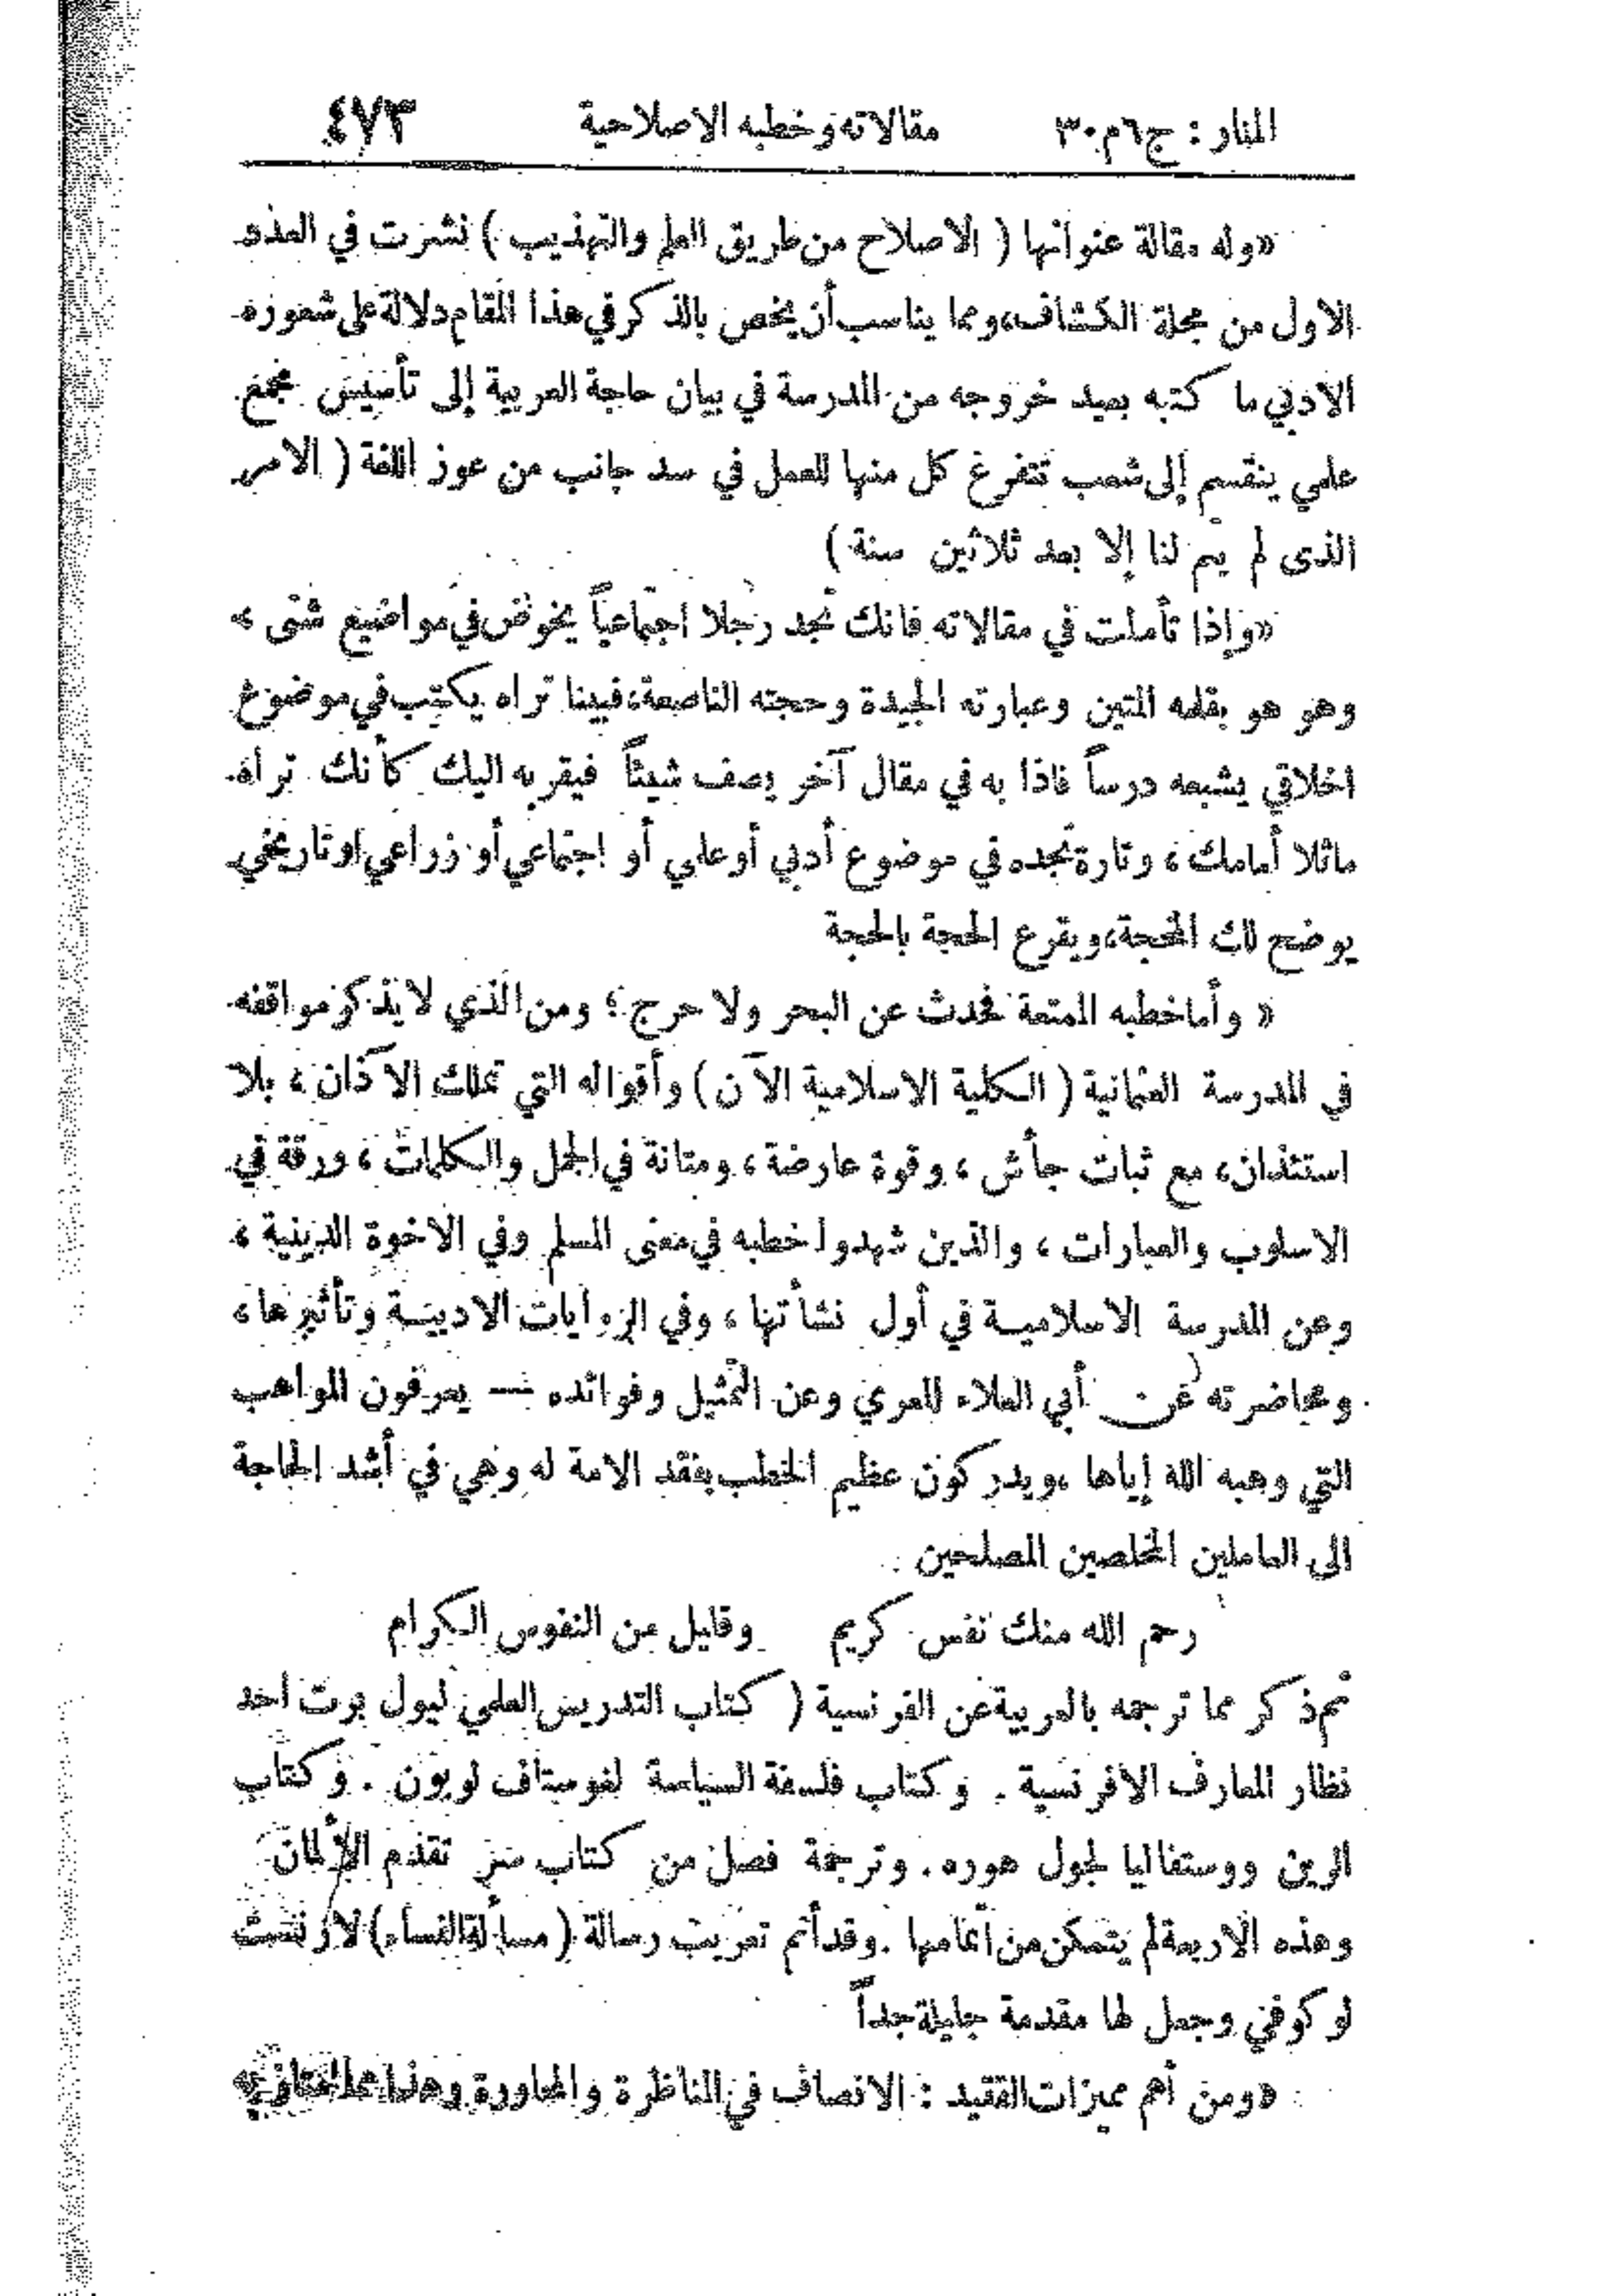 المنار : ج٦م٣٠ مقالاته وخطبه الاصلاحية ٤٧٣
«وله مقالة عنوانها ( الاصلاح من طريق العلم والتهذيب ) نشرت في العدد
الاول من مجلة الكشاف، ومما يناسب أن يخص بالذكر في هذا المقام دلالة على شعوره
الادبي ما كتبه بعيد خروجه من المدرسة في بيان حاجة العربية إلى تأسيس مجمع
علمي ينقسم إلى شعب تتفرغ كل منها للعمل في سد جانب من عوز اللغة ( الامر
الذى لم يتم لنا إلا بعد ثلاثين سنة )
«وإذا تأملت في مقالاته فانك تجد رجلا اجتماعياً يخوض في مواضيع شتى ،
وهو هو بقلمه المتين وعبارته الجيدة وحجته الناصعة، فبينا تراه يكتب في موضوع
اخلاقي يشبعه درساً فاذا به في مقال آخر يصف شيئاً فيقربه اليك كأنك تراه
ماثلا أمامك ، وتارة تجده في موضوع أدبي أو علمي أو اجتماعي أو زراعي او تاريخي
يوضح لك المحجة، ويقرع الحجة بالحجة
« وأما خطبه الممتعة فحدث عن البحر ولا حرج ؛ ومن الذي لا يذكر مواقفه
في المدرسة العثمانية ( الكلية الاسلامية الآن ) وأقواله التي تملك الآذان ، بلا
استئذان، مع ثبات جأش ، وقوة عارضة ، ومتانة في الجمل والكلمات ، ورقة في
الاسلوب والعبارات ، والذين شهدوا خطبه في معنى المسلم وفي الاخوة الدينية ،
وعن المدرسة الاسلامية في أول نشأتها ، وفي الروايات الادبية وتأثيرها ،
ومحاضرته عن أبي العلاء المعري وعن التمثيل وفوائده — يعرفون المواهب
التي وهبه الله إياها ، ويدركون عظيم الخطب بفقد الامة له وهي في أشد الحاجة
الى العاملين المخلصين المصلحين
رحم الله منك نفس كريم وقليل من النفوس الكرام
ثم ذكر مما ترجمه بالعربية عن الفرنسية ( كتاب التدريس العلمي لبول برت احد
نظار المعارف الافرنسية . وكتاب فلسفة السياسة لغوستاف لوبون . وكتاب
الرين ووستفاليا لجول هوره . وترجمة فصل من كتاب سر تقدم الألمان
وهذه الاربعة لم يتمكن من اتمامها . وقد أتم تعريب رسالة ( مسألة النساء ) لارنست
لوكوفي وجعل لها مقدمة جليلة جداً
«ومن أهم مميزات الفقيد : الانصاف في المناظرة والمحاورة وهذا